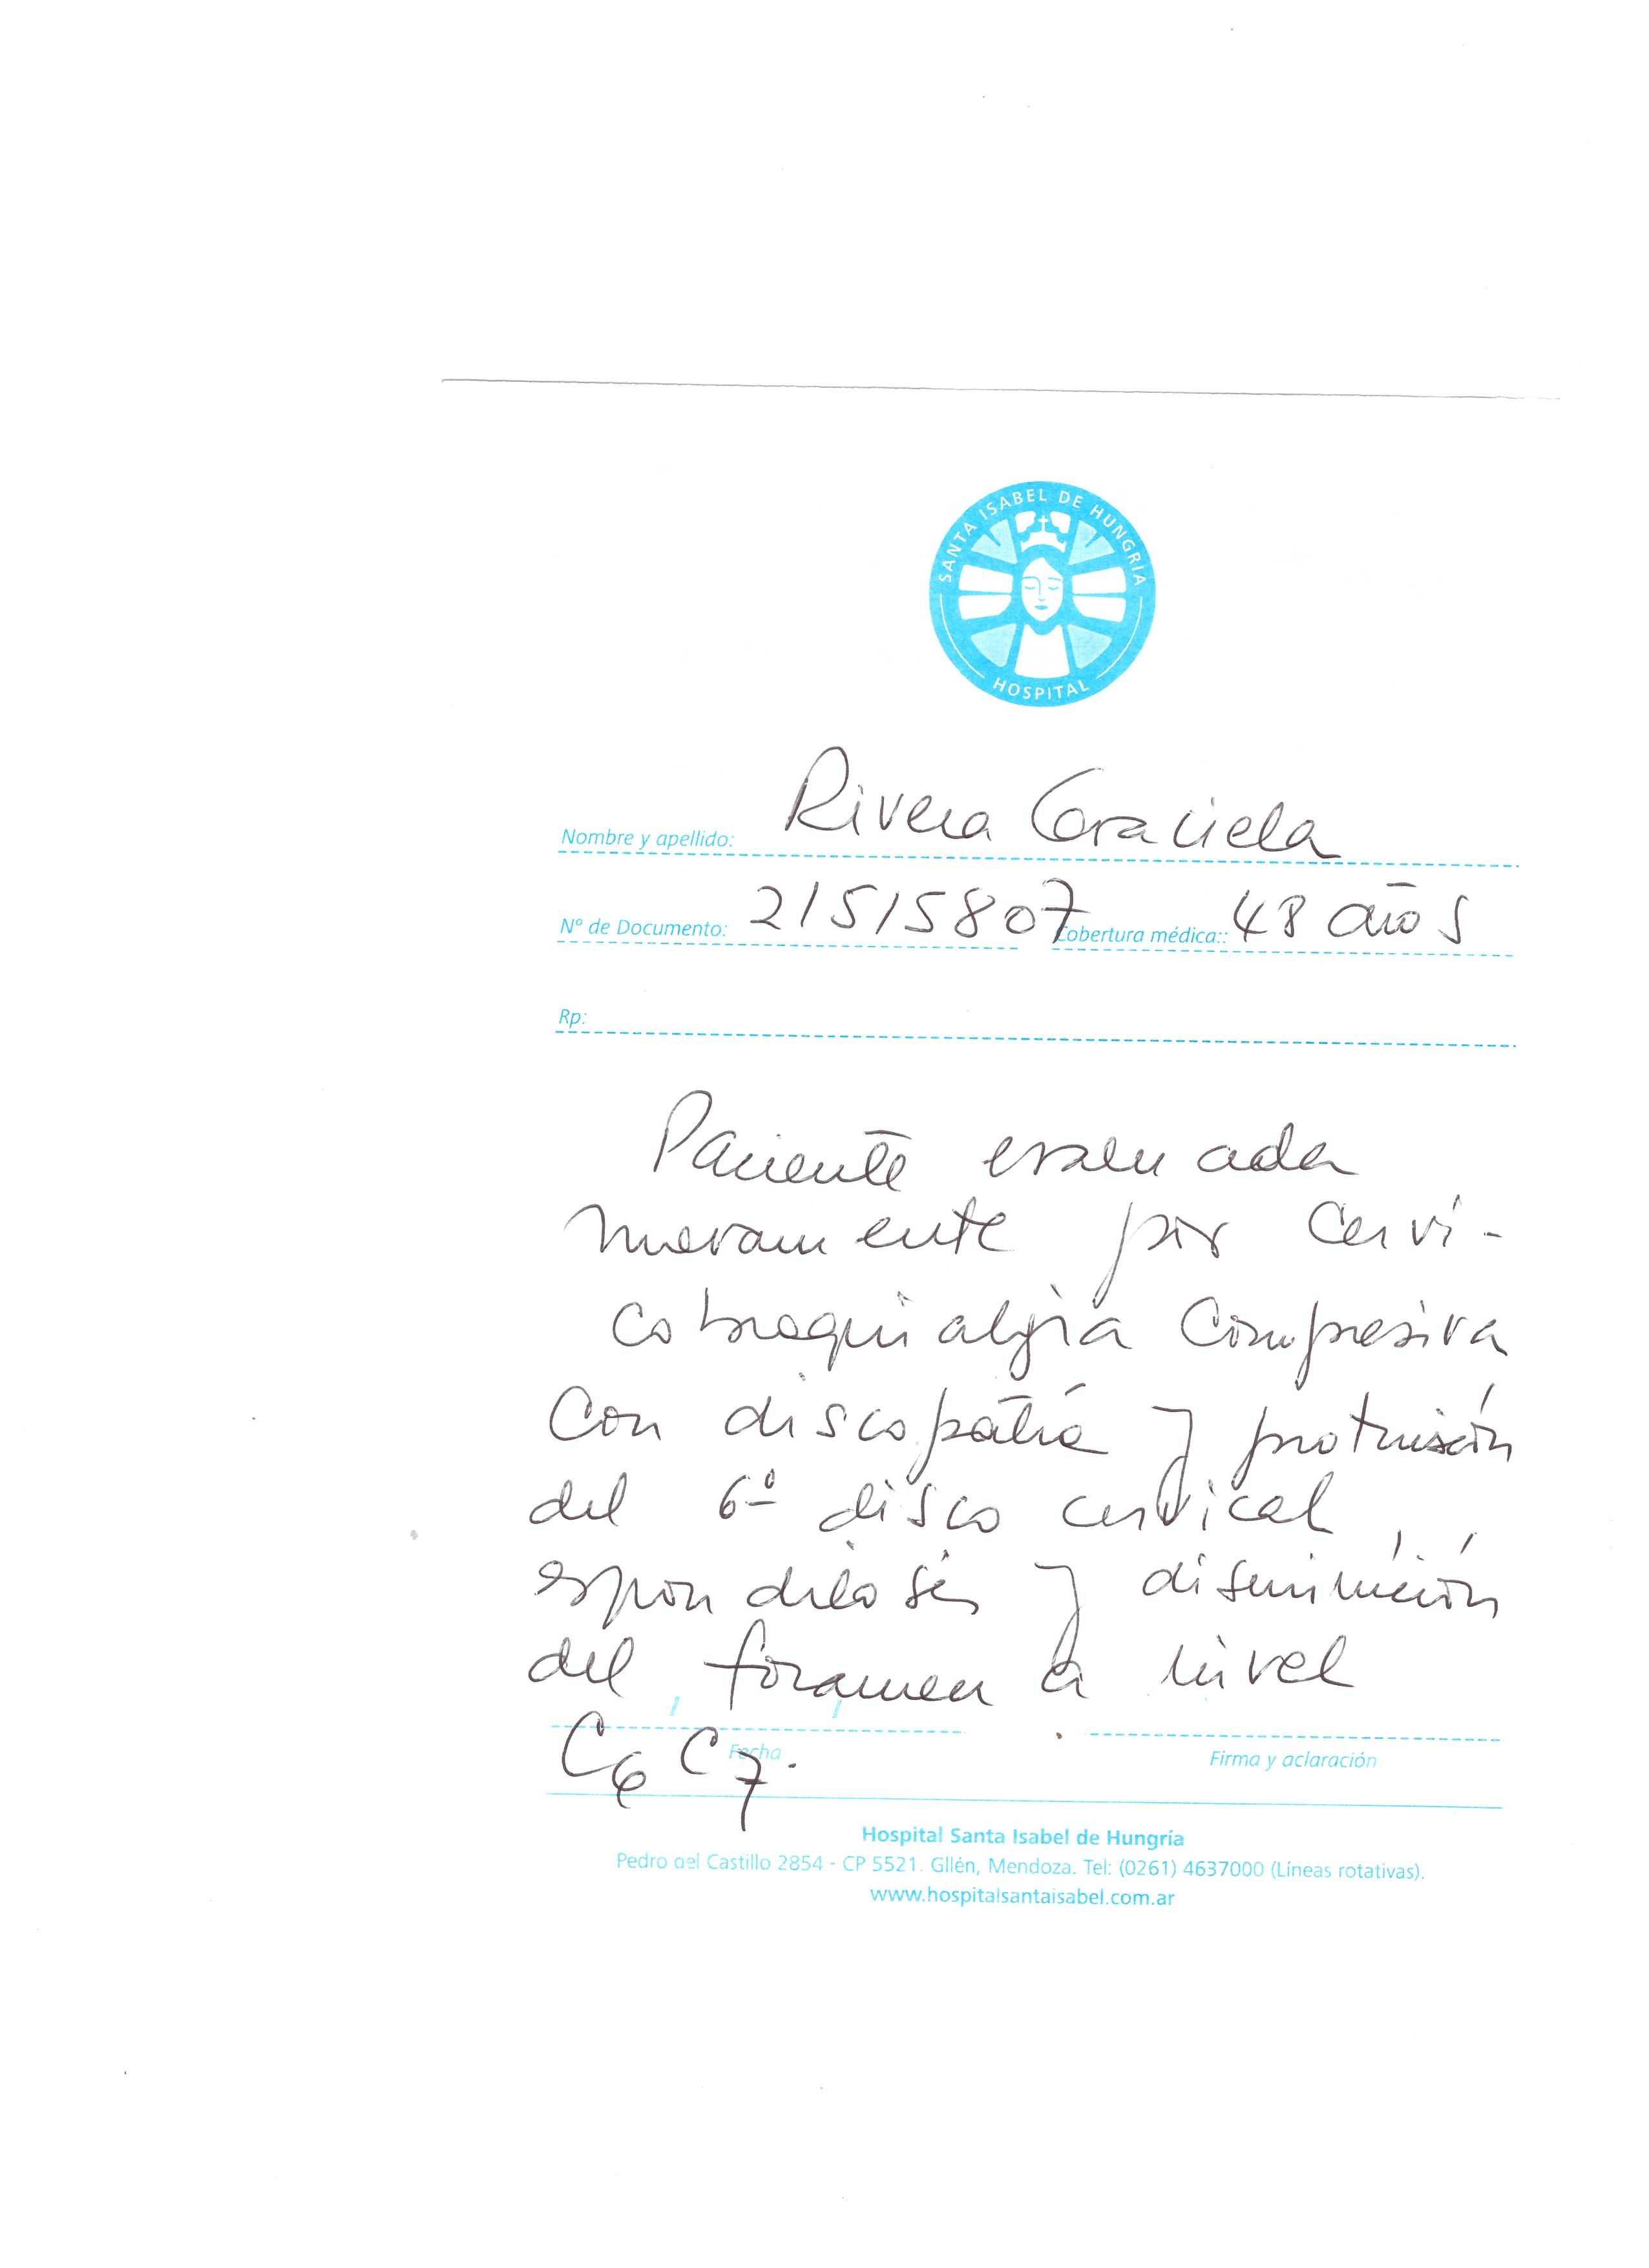 SANTA ISABEL DE HUNGRIA
HOSPITAL
Nombre y apellido: Rivera Graciela
Nº de Documento: 21515807 Cobertura médica:: 48 años
Rp:
Paciente evaluada
nuevamente por Cervi-
cobraquialgia Compresiva
Con discopatía y protrusión
del 6º disco cervical,
espondilosis y disminución
del foramen a nivel
C6 C7.
Fecha
Firma y aclaración
Hospital Santa Isabel de Hungría
Pedro del Castillo 2854 - CP 5521. Gllén, Mendoza. Tel: (0261) 4637000 (Líneas rotativas).
www.hospitalsantaisabel.com.ar